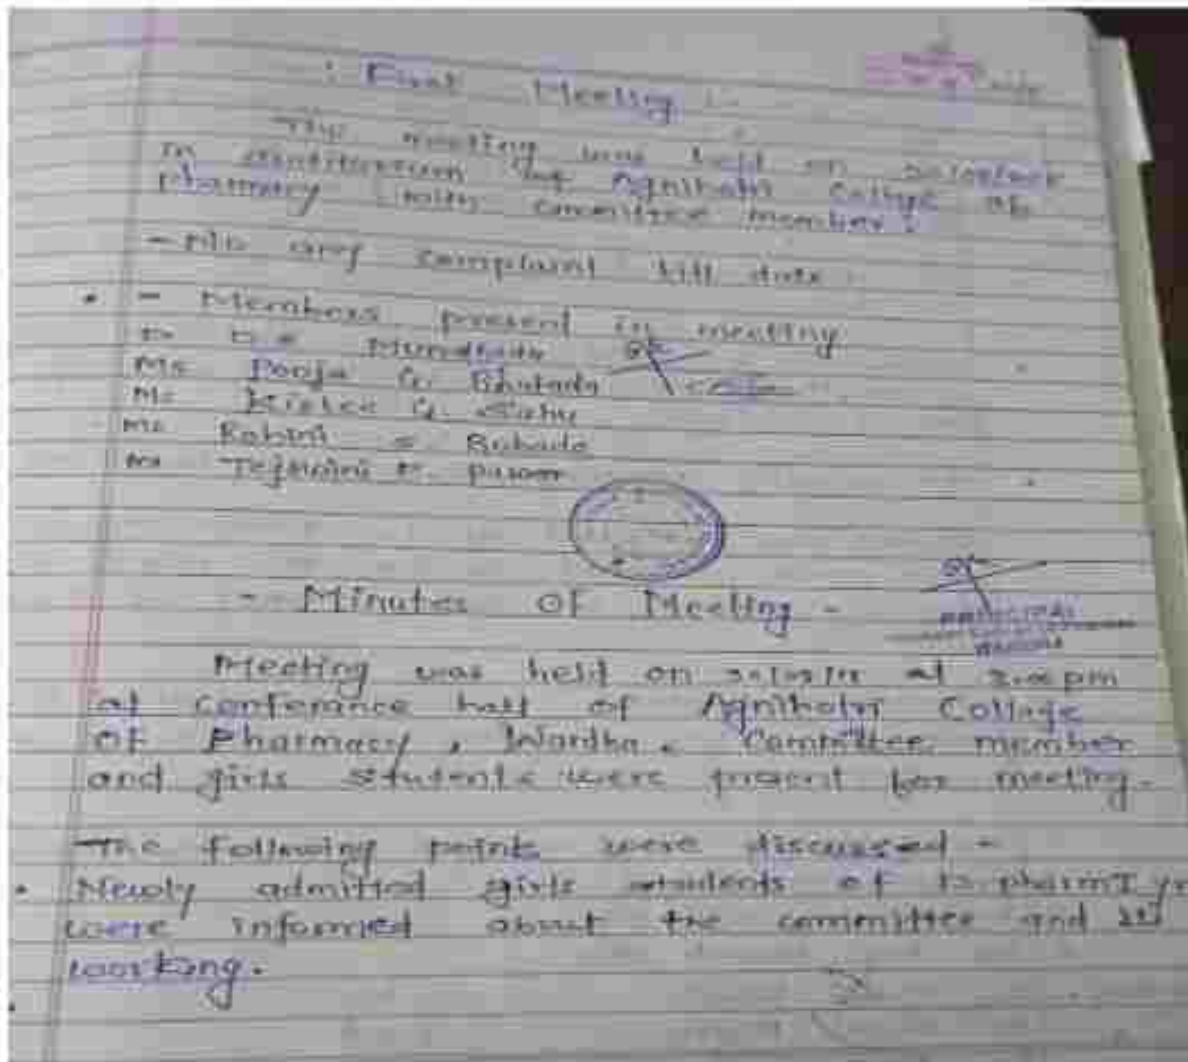 : First Meeting :
The meeting was held on
in auditorium of Agnihotri College of
Pharmacy with committee member :
- No any complaint till date.
- Members present in meeting
Mundhada
Ms Pooja G. Bhutada
Ms G. Sahu
Ms Rohini S.
Ms
- Minutes OF Meeting -
PRINCIPAL
Meeting was held on at pm
at conferance hall of Agnihotri College
OF Pharmacy, Wardha. Committee member
and girls students were present for meeting.
The following points were discussed -
Newly admitted girls students of B.pharm I yr
were informed about the committee and its
working.